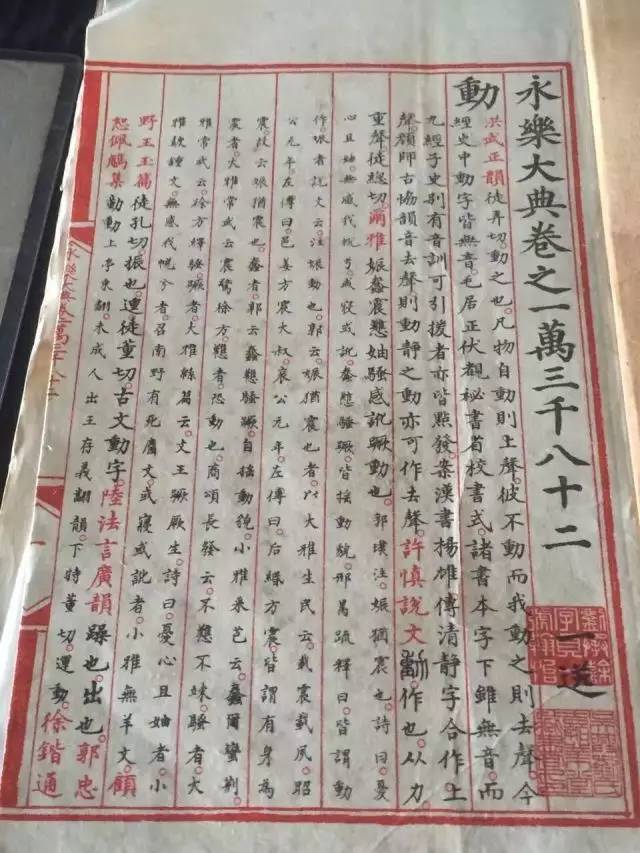 永樂大典卷之一萬三千八十二 一送
動
洪武正韻徒弄切動之也凡物自動則上聲彼不動而我動之則去聲今
經史中動字皆無音毛居正伏覩秘書省校書式諸書本字下雖無音而
九經子史别有音訓可引援者亦皆點發案漢書揚雄傳清静字合作上
聲顔師古協韻音去聲則動静之動亦可作去聲許慎說文動作也从力
重聲徒緫切爾雅娠蠢震戁妯騷感訛蹶動也郭璞注娠猶震也詩曰憂
心且妯無感我帨兮或寢或訛蠢戁騷蹶皆摇動貌邢昺疏釋曰皆謂動
作娠者說文云注娠動也郭云娠猶震也者以大雅生民云載震載夙昭
公元年左傳曰邑姜方震大叔哀公元年左傳曰后緡方震皆謂有身為
震故云娠猶震也蠢者郭云蠢戁騷蹶自摇動貌小雅采芑云蠢爾蠻荆
震者大雅常武云震驚徐方戁者恐動也商頌長發云不戁不竦騷者大
雅常武云徐方繹騷蹶者大雅緜篇云文王蹶厥生詩曰憂心且妯者小
雅鼓鍾文無感我帨兮者召南野有死麕文或寢或訛者小雅無羊文顧
野王玉篇徒孔切振也運徒董切古文動字陸法言廣韻躁也出也郭忠
恕佩觿集動動上亭東翻未成人出王存義翻韻下特董切運動徐鍇通
永樂大典卷一萬三千八十二